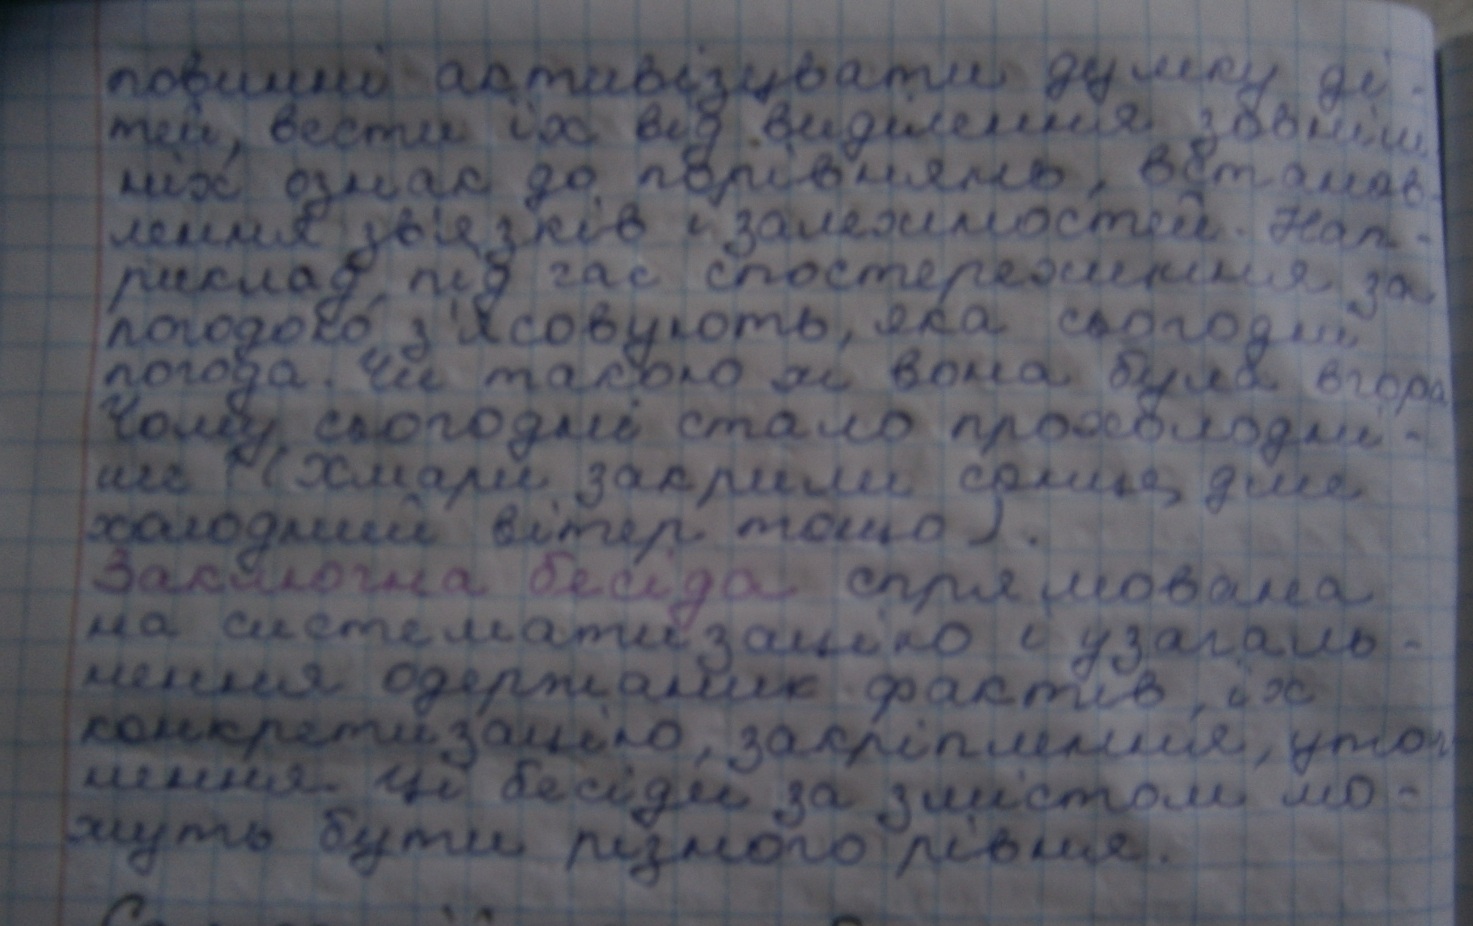 повинні активізувати думку ді-
тей, вести їх від виділення зовніш
ніх ознак до порівнянь, встанов-
лення зв'язків і залежностей. Нап-
риклад, під час спостереження за
погодою з'ясовують, яка сьогодні
погода. Чи такою ж вона була вчора
Чому сьогодні стало прохолодні-
ше? (Хмари закрили сонце, дме
холодний вітер тощо).
Заключна бесіда спрямована
на систематизацію і узагаль-
нення одержаних фактів, їх
конкретизацію, закріплення, уточ
нення. Ці бесіди за змістом мо-
жуть бути різного рівня.